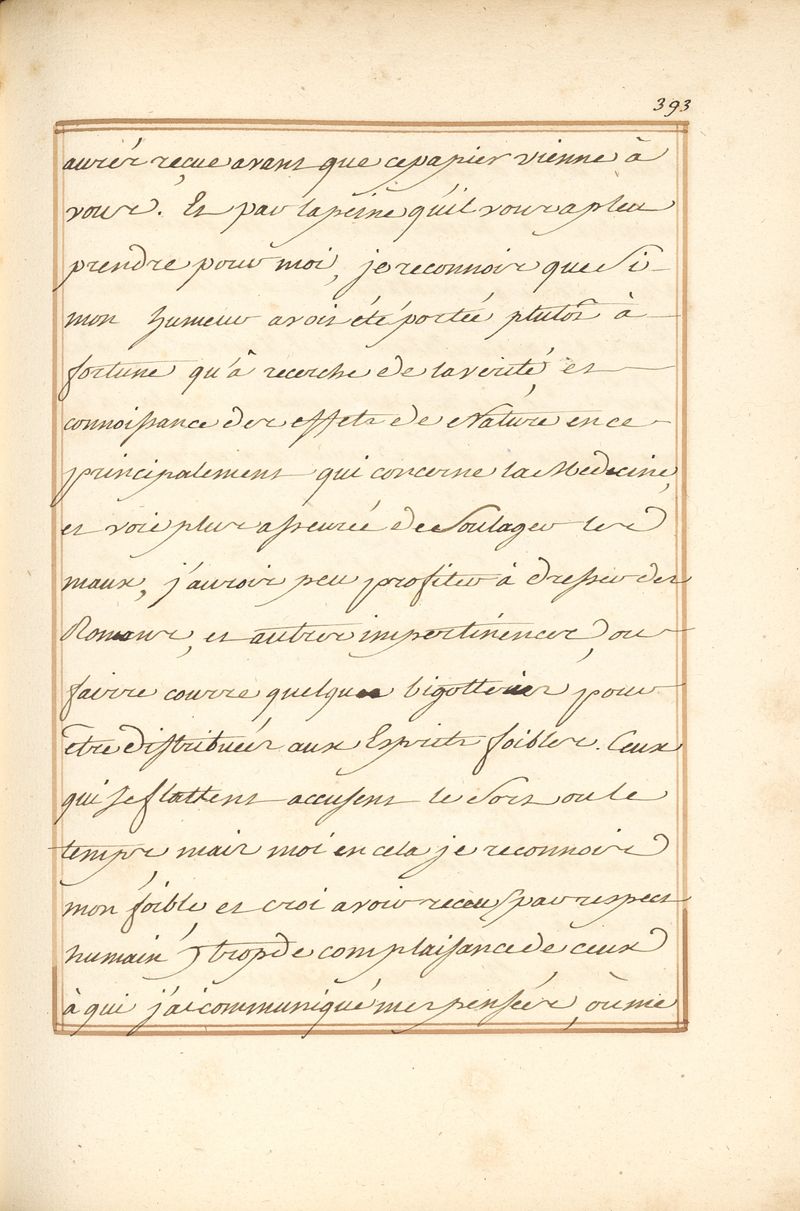 393
aurés reçue avant que ce papier vienne à
vous. Et par la peine qu'il vous a pleu
prendre pour moi, je reconnois que si
mon humeur avoit été portée plutost à
fortune qu'à recerche de la verité, et
connoissance des effets de Nature en ce
principalement qui concerne la Medecine,
et voie plus asseurée de soulager les
maux, j'aurois peu profiter à dresser des
Romans, et autres impertinences, ou
faire courre quelques bigotteries, pour
être distribuées aux Esprits foibles. Ceux
qui se flattent accusent le sort ou le
temps, mais moi en cela je reconnois
mon foible et croi avoir receu par respect
humain trop de complaisance de ceux
à qui j'ai communiqué mes pensées, où me